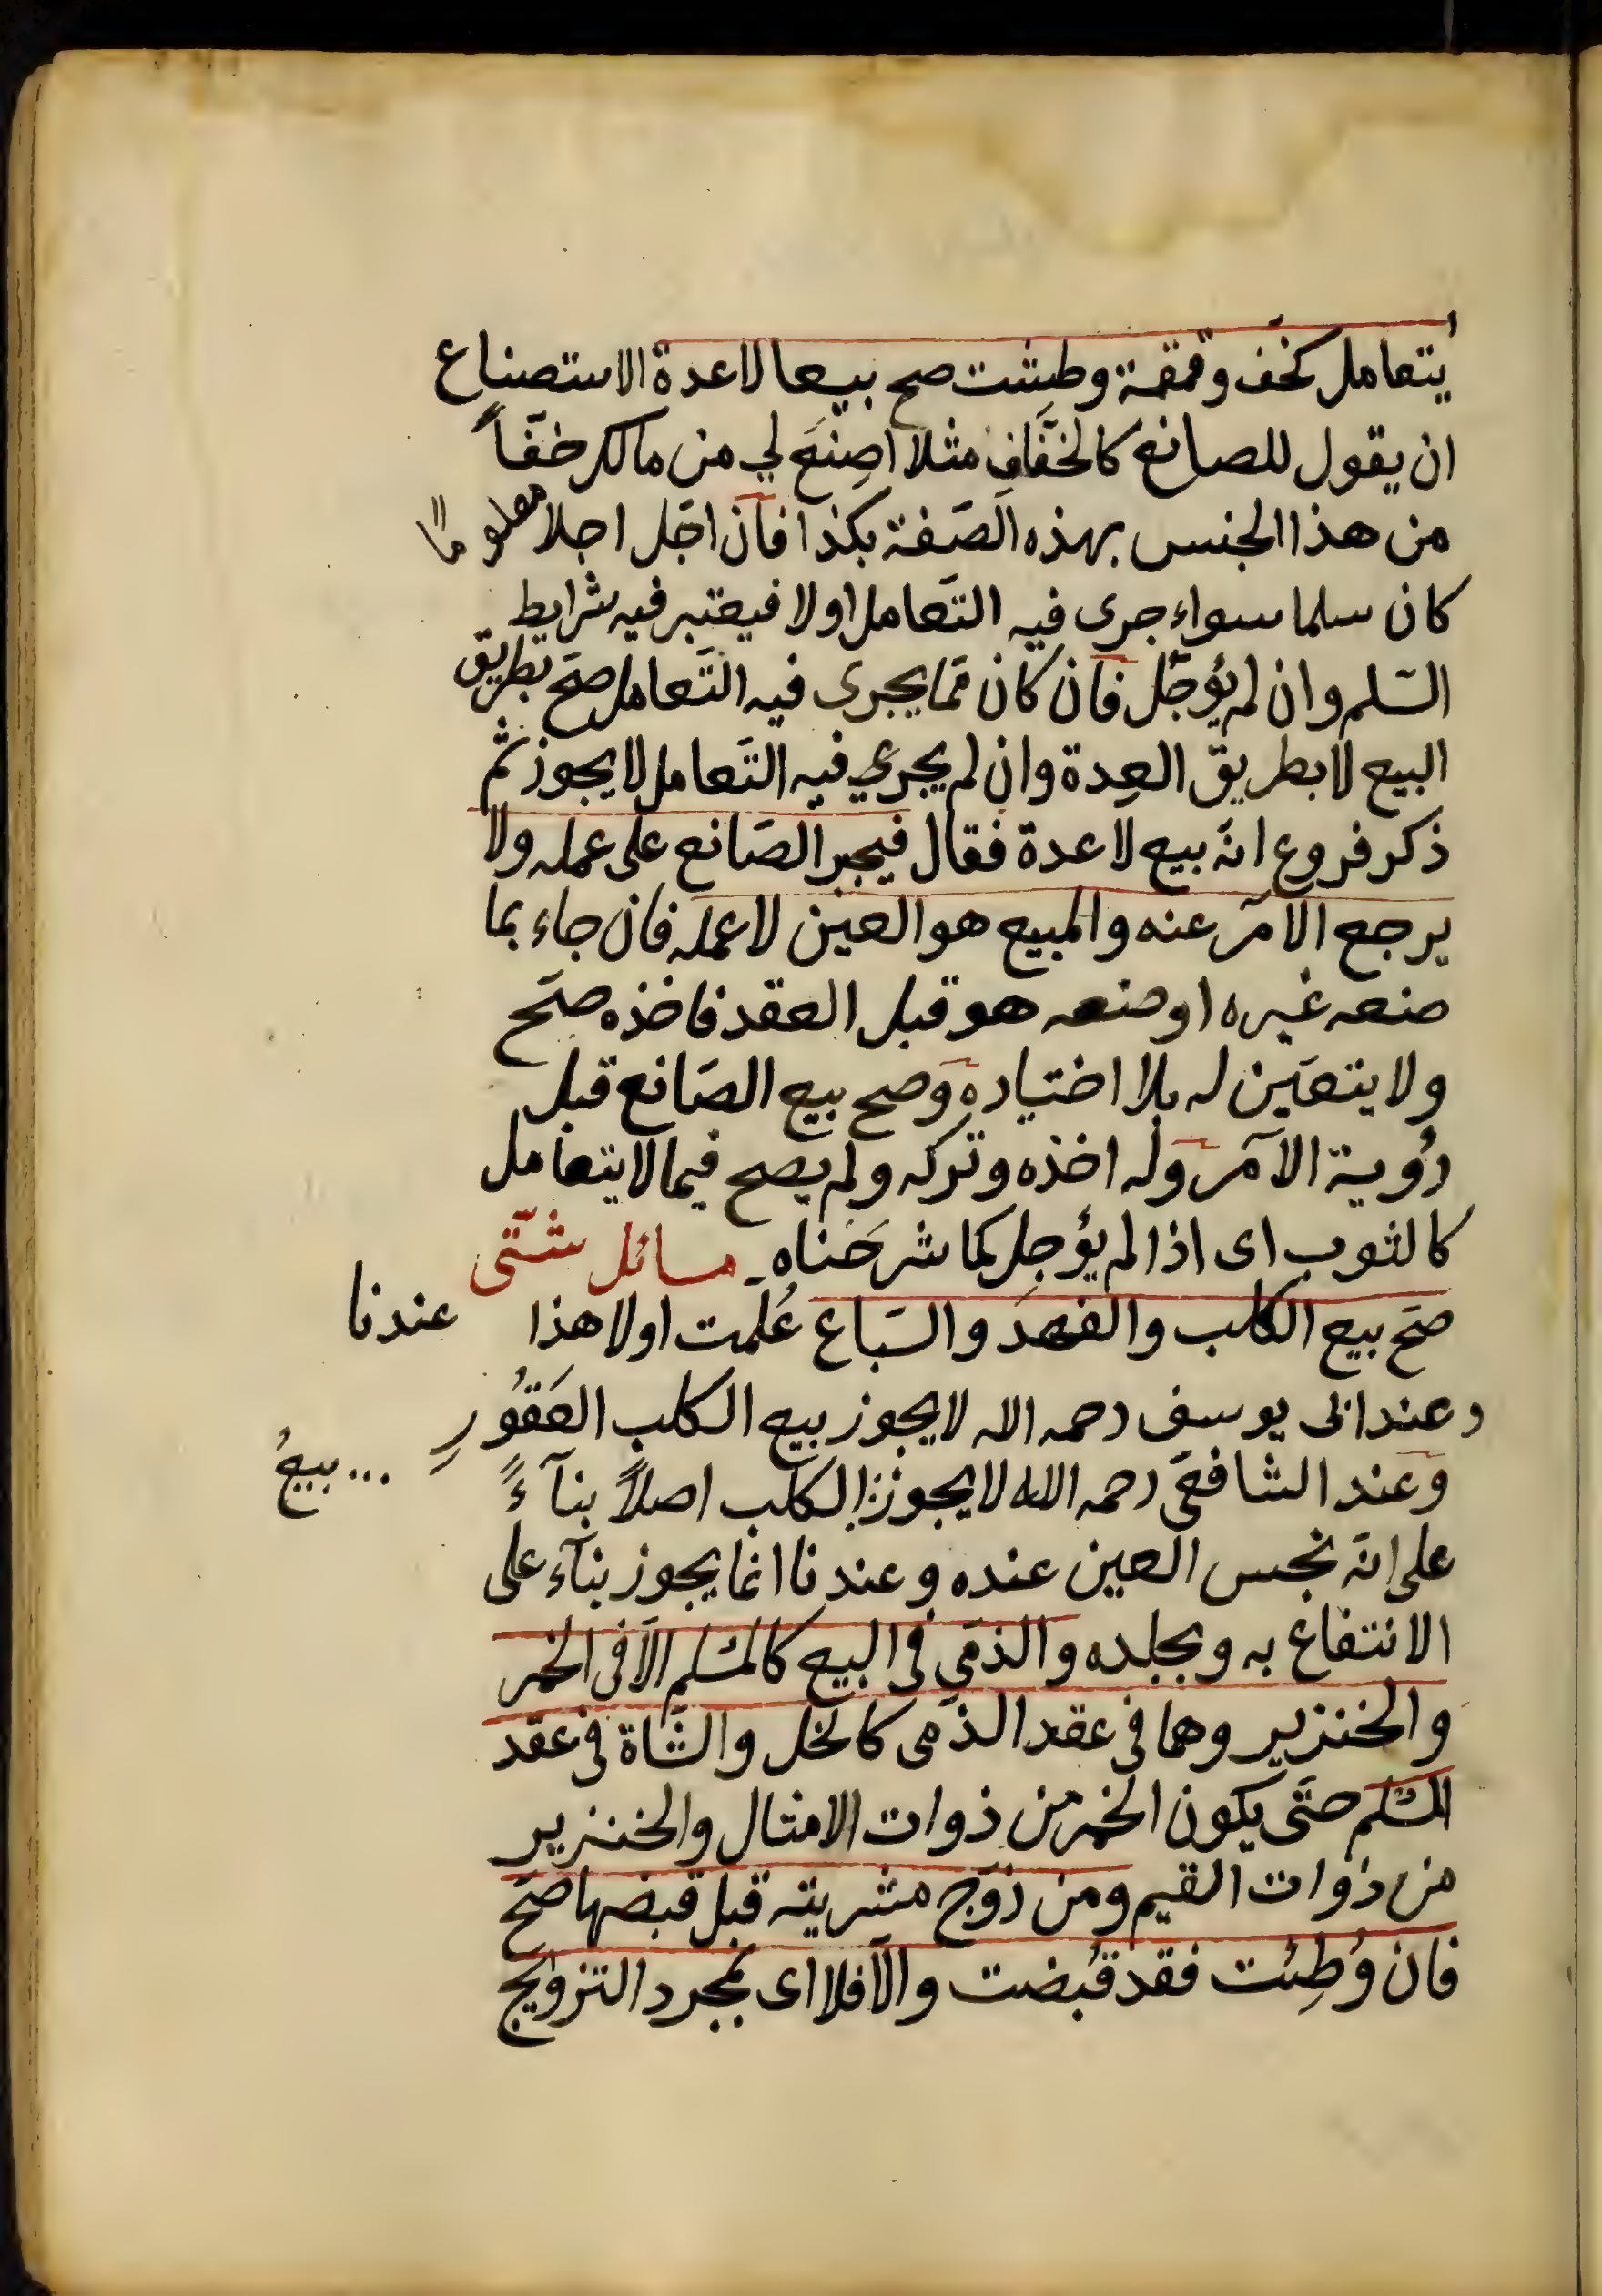 يتعامل كخف وقمقمة وطشت صح بيعا لاعدة الاستصناع
ان يقول للصانع كالخفّاف مثلا اصنع لي من مالك خفّاً
من هذا الجنس بهذه الصّفة بكذا فان اجّل اجلا معلوماً
كان سلما سواء جرى فيه التّعامل اولا فيعتبر فيه شرايط
السّلم وان لم يؤجّل فان كان ممّا يجرى فيه التّعامل صحّ بطريق
البيع لا بطريق العِدة وان لم يجري فيه التّعامل لا يجوز ثم
ذكر فروع انّه بيع لا عدة فقال فيجبر الصّانع على عمله ولا
يرجع الآمر عنه والمبيع هو العين لا عمله فان جاء بما
صنعه غيره او صنعه هو قبل العقد فاخذه صحّ
ولا يتعيّن له بلا اختياره وصح بيع الصّانع قبل
رؤية الآمر وله اخذه وتركه ولم يصح فيما لا يتعامل
كالثوب اى اذا لم يؤجل كما شرحناه مسائل شتّى
صحّ بيع الكلب والفهد والسّباع عُلّمت اولا هذا عندنا
وعند ابى يوسف رحمه الله لا يجوز بيع الكلب العَقُورِ
وعند الشافعىّ رحمه الله لا يجوز الكلب اصلاً بنآءً
... بيعُ
على انّه نجس العين عنده وعندنا انّما يجوز بنآء على
الانتفاع به وبجلده والذمّى فى البيع كالمسلم الّا فى الخمر
والخنزير وهما فى عقد الذمى كالخل والشّاة فى عقد
المسلم حتّى يكون الخمر من ذوات الامثال والخنزير
من ذوات القيم ومن زوّج مشريته قبل قبضها صحّ
فان وُطِئت فقد قُبضت والّا فلا اى بمجرد التزويج